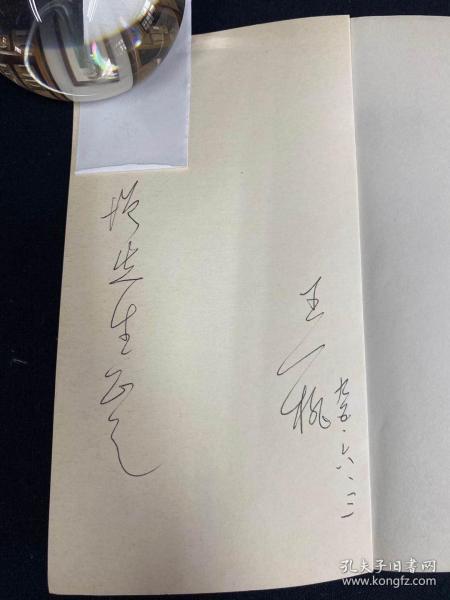 先生正之
王一桃
九五·六·三
孔夫子旧书网
www.kongfz.com